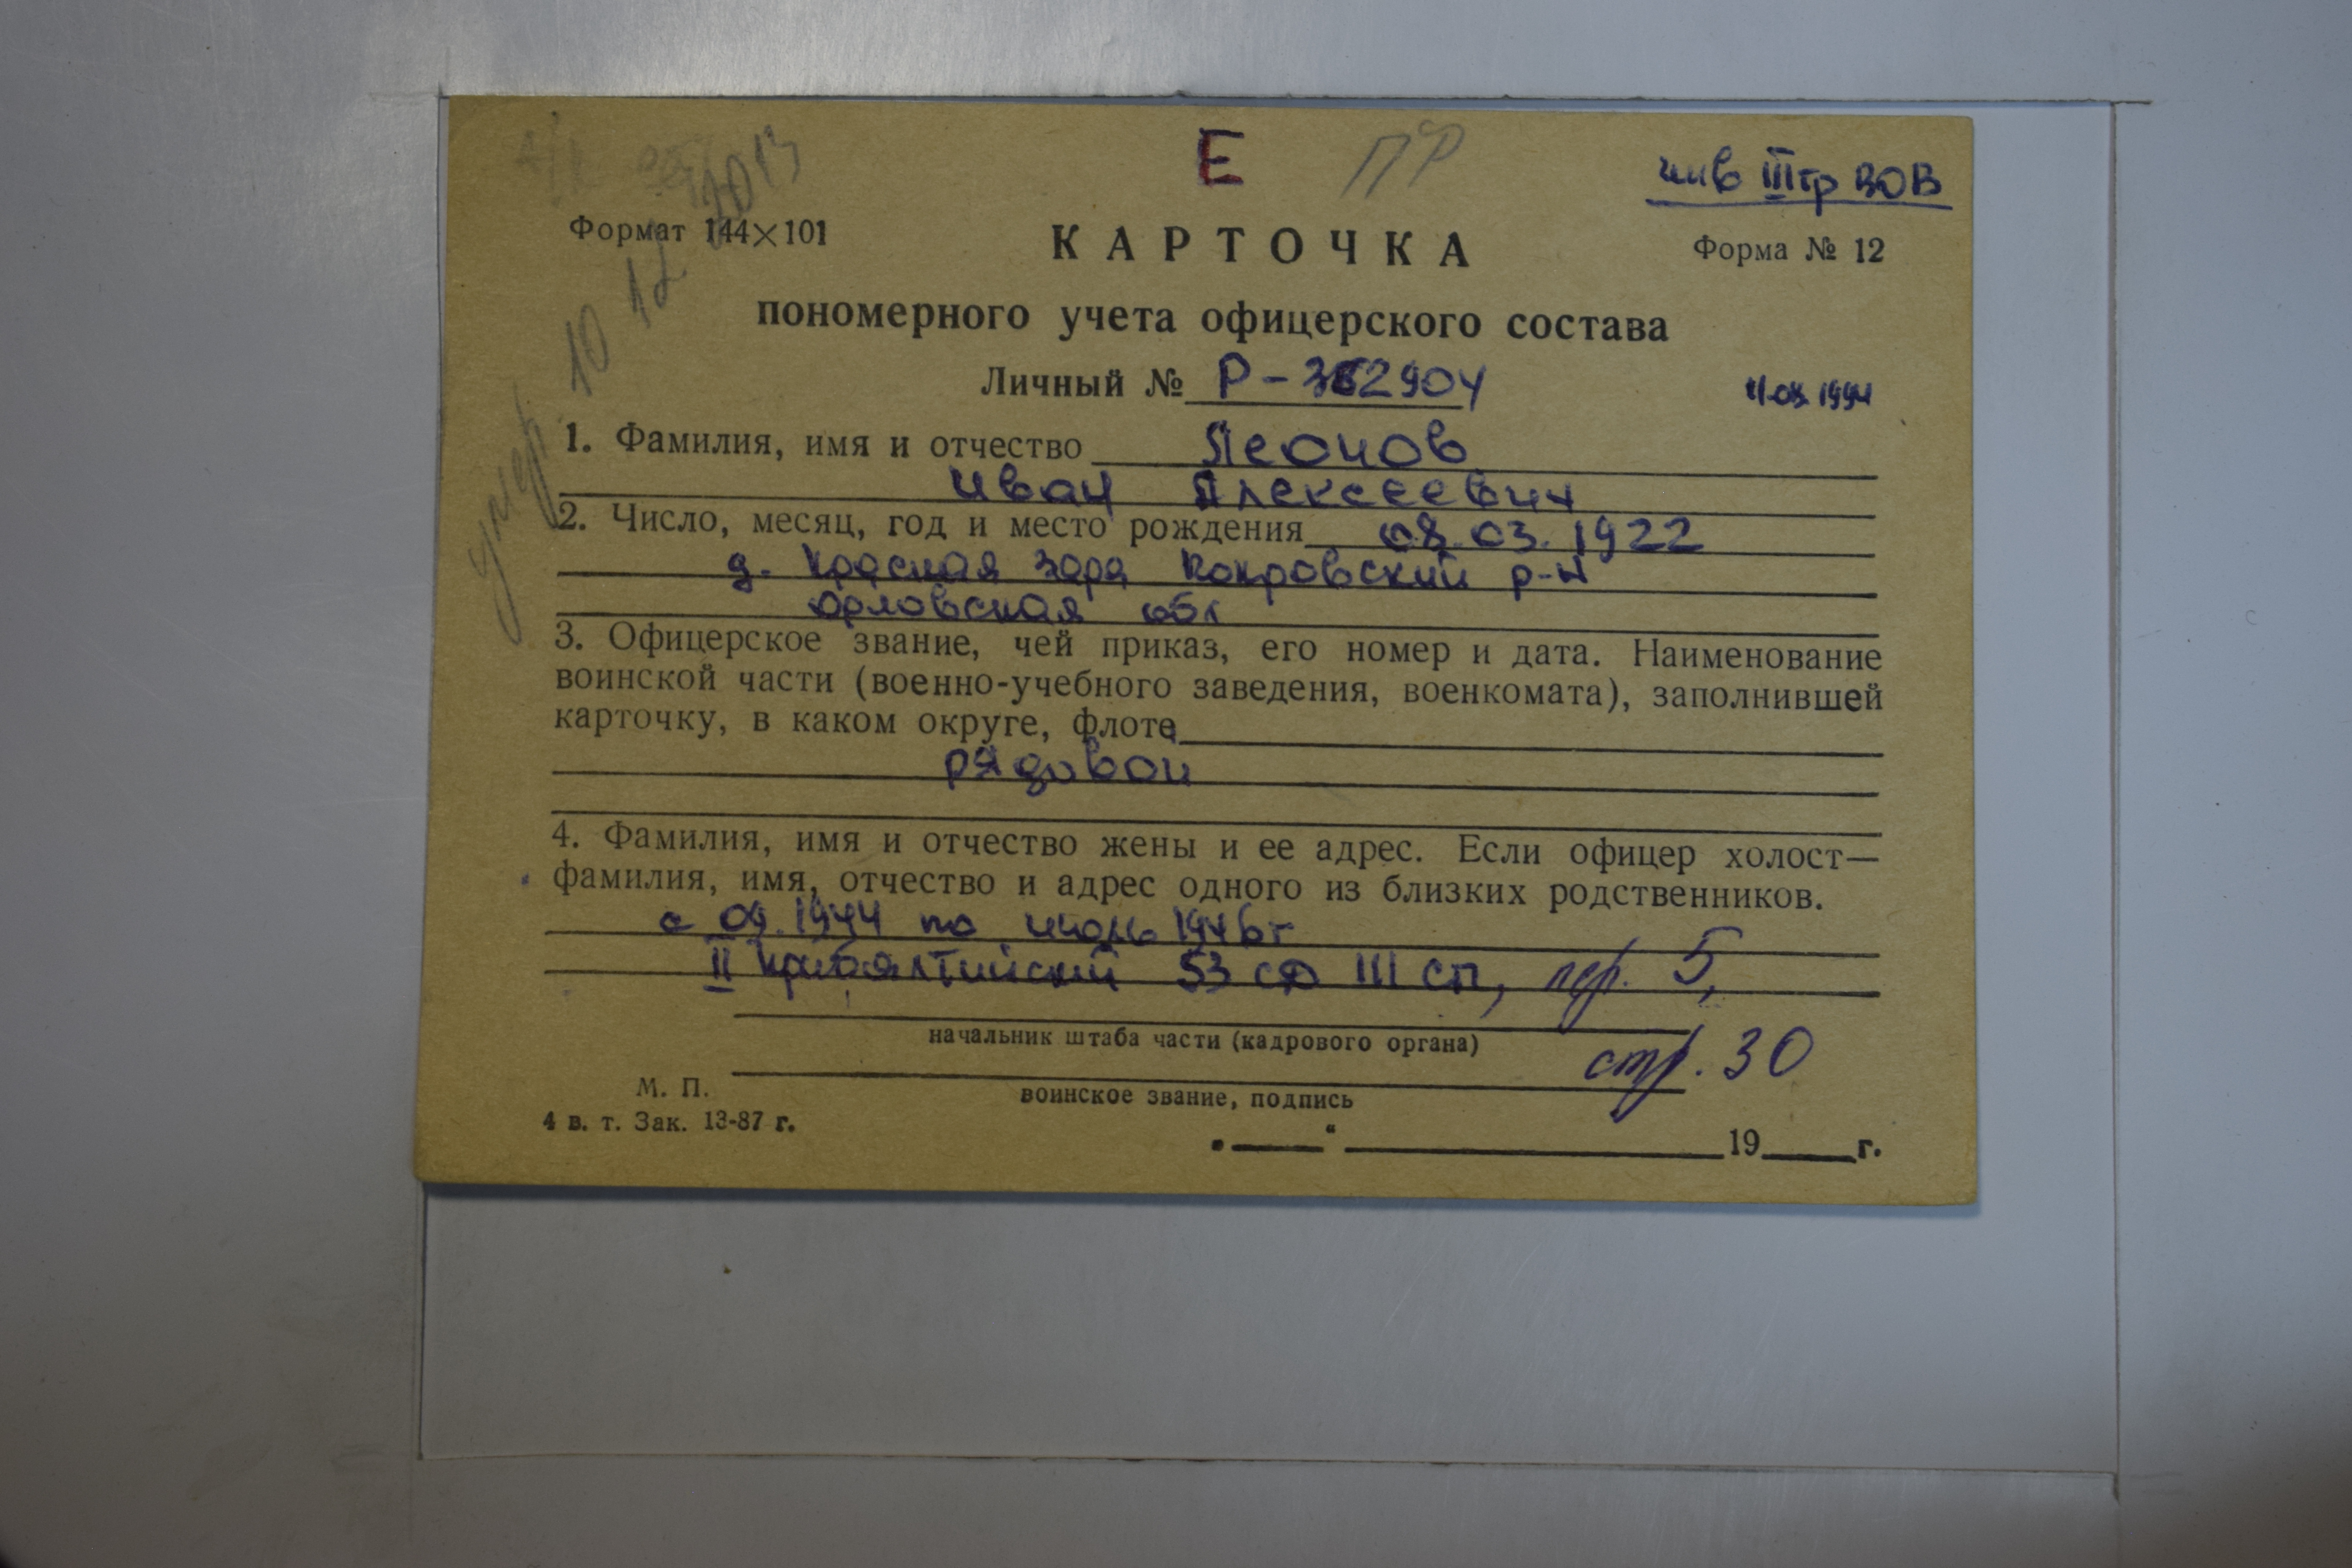 Е ПР
инв III гр ВОВ
Формат 144×101
Форма № 12
КАРТОЧКА
пономерного учета офицерского состава
Личный № Р-362904
1994
умер 10 12 2013
1. Фамилия, имя и отчество Леонов
Иван Алексеевич
2. Число, месяц, год и место рождения 08.03.1922
д. Красная заря Покровский р-н
Орловская обл
3. Офицерское звание, чей приказ, его номер и дата. Наименование
воинской части (военно-учебного заведения, военкомата), заполнившей
карточку, в каком округе, флоте
рядовой
4. Фамилия, имя и отчество жены и ее адрес. Если офицер холост—
фамилия, имя, отчество и адрес одного из близких родственников.
с 09.1944 по июль 1946г
II Прибалтийский 53 сд III сп, пер. 5,
стр. 30
начальник штаба части (кадрового органа)
воинское звание, подпись
М. П.
4 в. т. Зак. 13-87 г.
„___“ ______ 19___г.